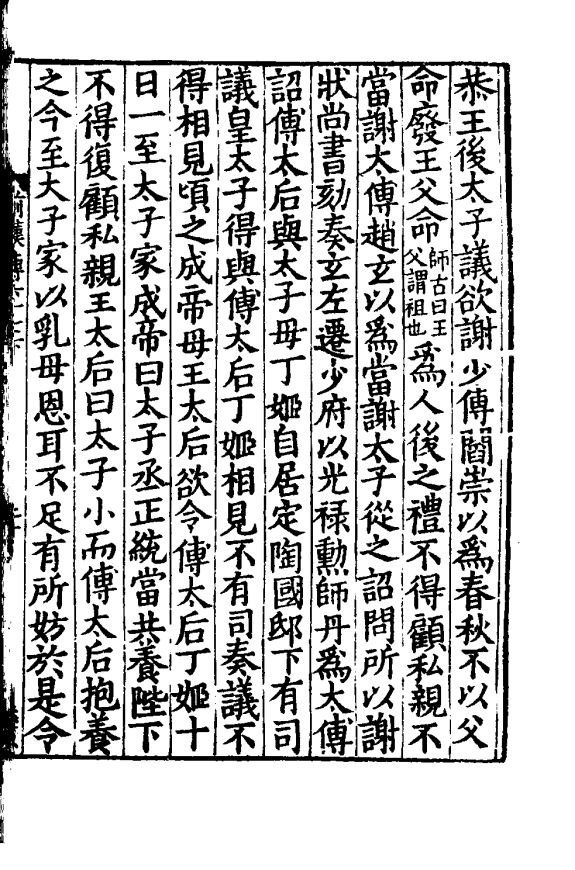 恭王後太子議欲謝少傅閻崇以爲春秋不以父
命廢王父命師古曰王父謂祖也爲人後之禮不得顧私親不
當謝太傅趙玄以爲當謝太子從之詔問所以謝
狀尚書劾奏玄左遷少府以光祿勳師丹爲太傅
詔傅太后與太子母丁姬自居定陶國邸下有司
議皇太子得與傅太后丁姬相見不有司奏議不
得相見頃之成帝母王太后欲令傅太后丁姬十
日一至太子家成帝曰太子丞正統當共養陛下
不得復顧私親王太后曰太子小而傅太后抱養
之今至大子家以乳母恩耳不足有所妨於是令